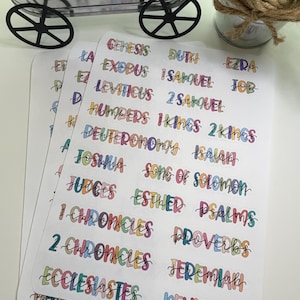 GENESIS RUTH EZRA
EXODUS 1 SAMUEL JOB
LEVITICUS 2 SAMUEL
NUMBERS 1 KINGS 2 KINGS
DEUTERONOMY ISAIAH
JOSHUA SONG OF SOLOMON
JUDGES ESTHER PSALMS
1 CHRONICLES PROVERBS
2 CHRONICLES JEREMIAH
ECCLESIASTES